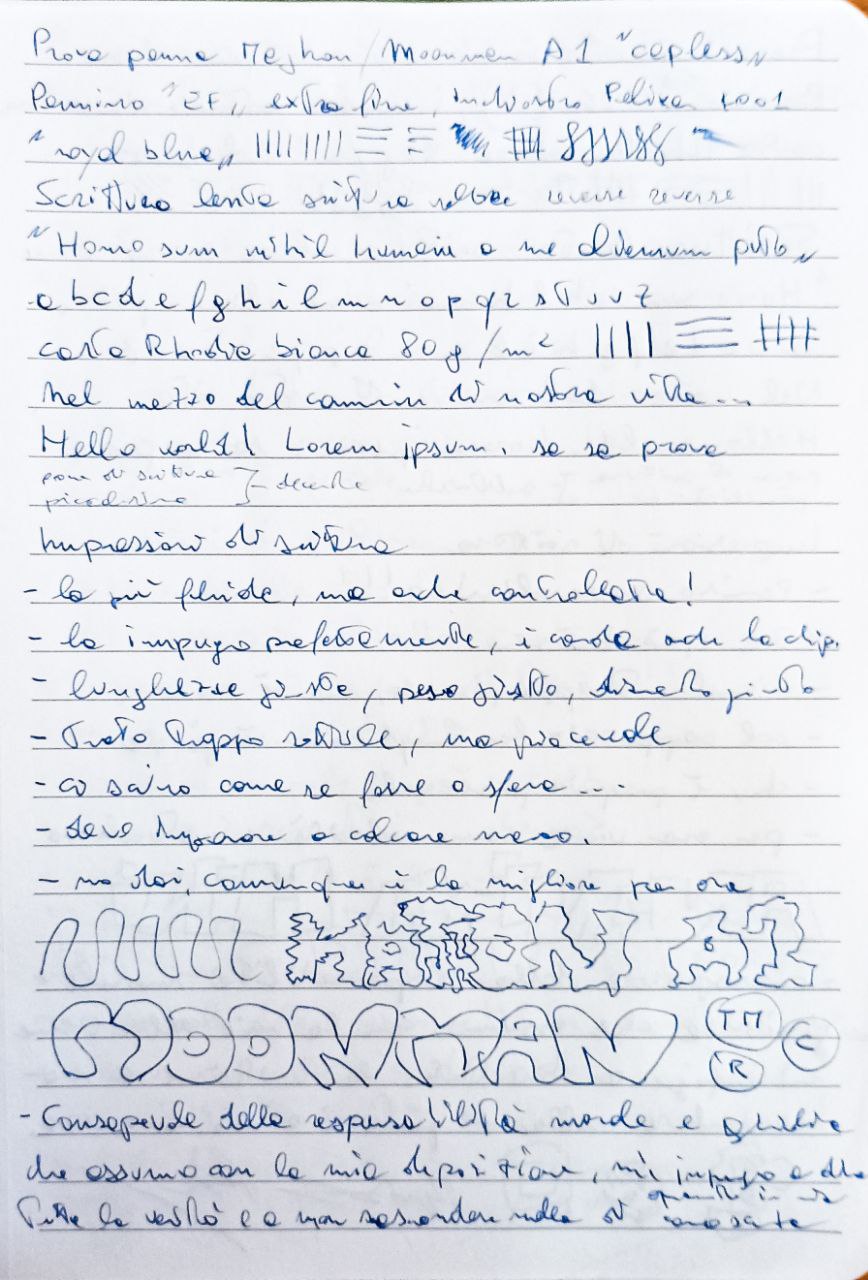 Prova penna Meghon / Moonmen A1 "capless"
Pennino "EF", extra fine, inchiostro Pelikan 4001
"royal blue"
Scrittura lenta scrittura veloce reverse reverse
"Homo sum nihil humani a me alienum puto"
a b c d e f g h i l m n o p q r s t u v z
carta Rhodia bianca 80 g/m²
Nel mezzo del cammin di nostra vita...
Hello world! Lorem ipsum. sa sa prova
prova di scrittura } decente
piccolissima
Impressioni di scrittura
- la più fluida, ma anche controllata!
- la impugno perfettamente, è comoda anche la clip.
- lunghezza giusta, peso giusto, diametro giusto
- Tratto troppo sottile, ma piacevole
- ci scrivo come se fosse a sfera...
- devo imparare a calcare meno.
- ma dai, comunque è la migliore per ora
MAJOHN A1
MOONMAN TM R C
- Consapevole della responsabilità morale e giuridica
che assumo con la mia deposizione, mi impegno a dire
tutta la verità e a non nascondere nulla di quanto a mia
conoscenza